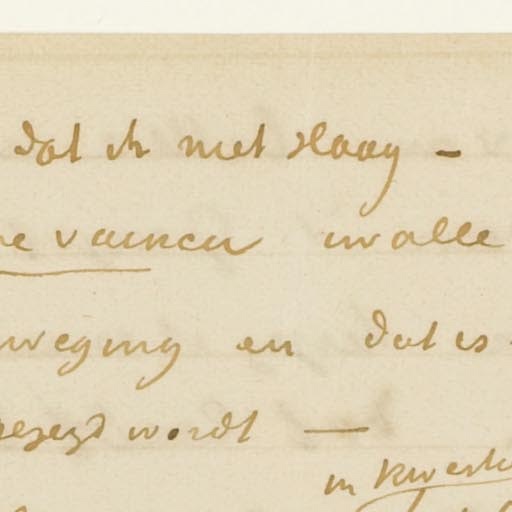 dat ik niet slaag –
vaincu in alle
weging en dat is
gezegd wordt —
in kwesti